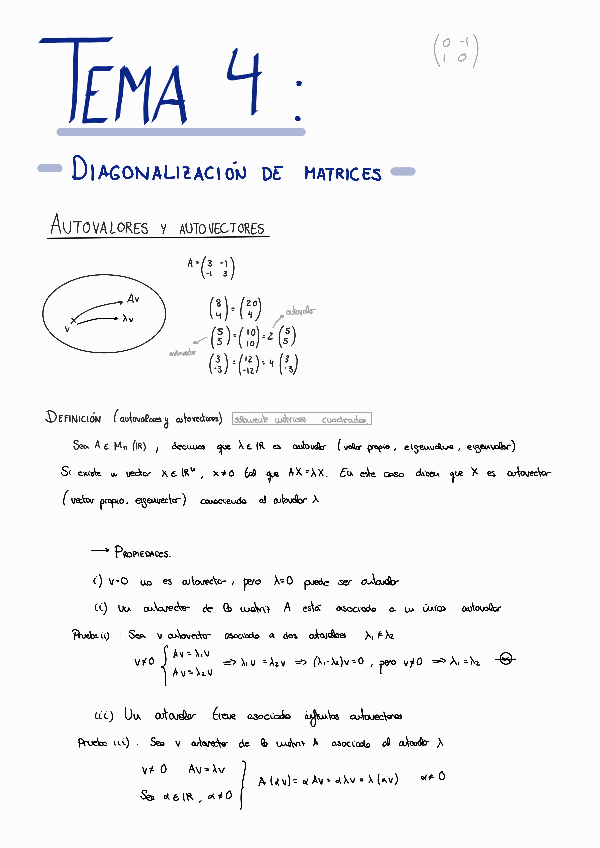 TEMA 4 :
(0 -1
1 0)
DIAGONALIZACIÓN DE MATRICES
AUTOVALORES Y AUTOVECTORES
A = (3 -1
-1 3)
Av
λv
v
(8 4) = (20 4)
autovalor
(5 5) = (10 10) = 2 (5 5)
autovector
(3 -3) = (12 -12) = 4 (3 -3)
DEFINICIÓN (autovalores y autovectores) solamente matrices cuadradas
Sea A ∈ Mn (IR), decimos que λ ∈ IR es autovalor (valor propio, eigenvalue, eigenvalor)
Si existe un vector X ∈ IRⁿ, x≠0 tal que AX = λX. En este caso dicen que X es autovector
(vector propio, eigenvector) asociado al autovalor λ
→ PROPIEDADES.
i) v=0 no es autovector, pero λ=0 puede ser autovalor
ii) Un autovector de la matriz A está asociado a un único autovalor
Prueba ii) Sea v autovector asociado a dos autovalores λ₁ ≠ λ₂
v≠0 { Av = λ₁v
Av = λ₂v
=> λ₁v = λ₂v => (λ₁-λ₂)v = 0, pero v≠0 => λ₁ = λ₂
iii) Un autovalor tiene asociado infinitos autovectores
Prueba iii). Sea v autovector de la matriz A asociado al autovalor λ
v≠0 Av = λv
Sea α ∈ IR, α≠0
} A(αv) = αAv = αλv = λ(αv) α≠0